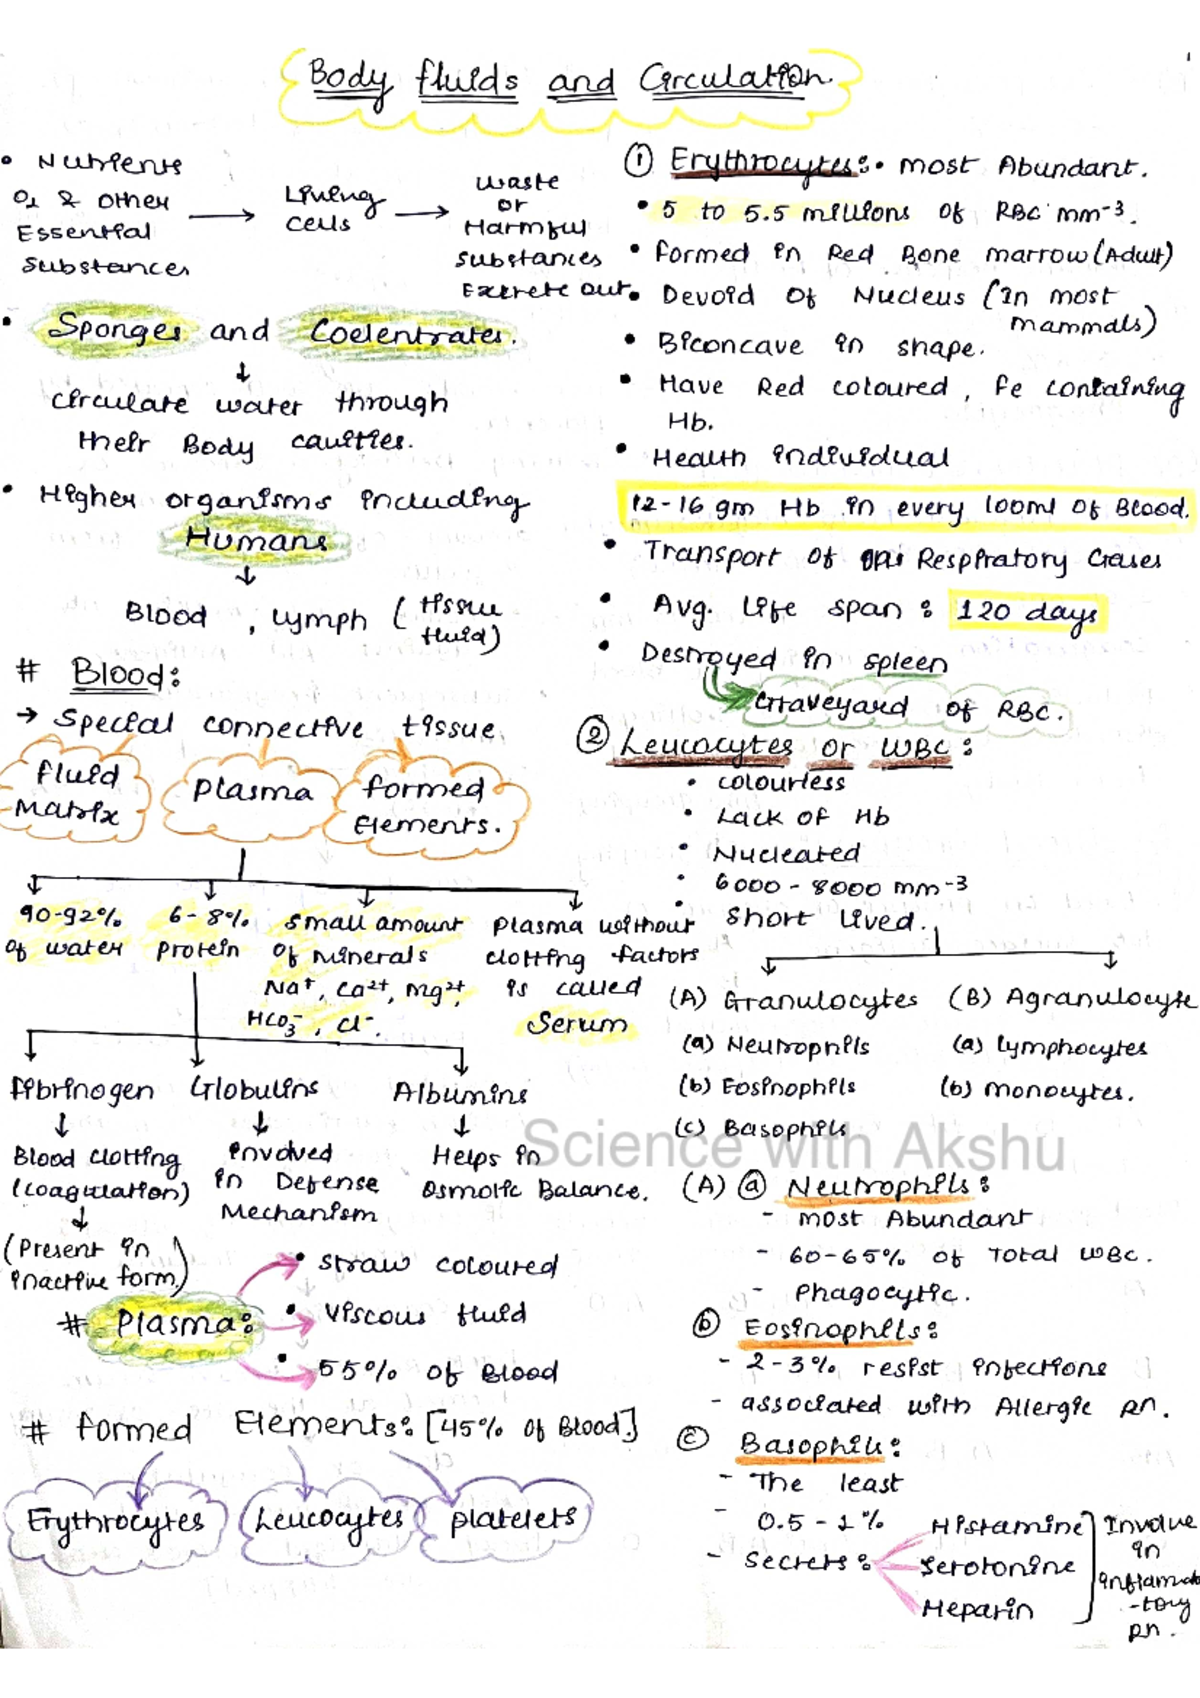 1
Body fluids and Circulation
• Nutrients
O₂ & other
Essential
substances
Living
cells
waste
or
Harmful
substances
Excrete out.
• Sponges and Coelentrates.
circulate water through
their Body cavities.
• Higher organisms including
Humans
Blood, Lymph (tissue
fluid)
# Blood:
→ Special connective tissue
fluid
Matrix
Plasma
formed
Elements.
90-92%
of water
6-8%
protein
small amount
of minerals
Na⁺, Ca²⁺, Mg²⁺,
HCO₃⁻, Cl⁻.
plasma without
clotting factors
is called
Serum
fibrinogen
Globulins
Albumins
Blood clotting
(coagulation)
(Present in
inactive form.)
involved
in Defense
Mechanism
Helps in
Osmotic Balance.
# Plasma:
• straw coloured
• viscous fluid
• 55% of Blood
# formed Elements: [45% of Blood]
Erythrocytes
Leucocytes
platelets
① Erythrocytes: • most Abundant.
• 5 to 5.5 millions of RBC mm⁻³.
• formed in Red Bone marrow (Adult)
• Devoid of Nucleus (in most
mammals)
• Biconcave in shape.
• Have Red coloured, fe containing
Hb.
• Health individual
12-16 gm Hb in every 100ml of Blood.
• Transport of Respiratory Gases
• Avg. life span: 120 days
• Destroyed in spleen
Graveyard of RBC.
② Leucocytes or WBC:
• colourless
• Lack of Hb
• Nucleated
• 6000-8000 mm⁻³
• Short lived.
(A) Granulocytes
(a) Neutrophils
(b) Eosinophils
(c) Basophils
(B) Agranulocyte
(a) lymphocytes
(b) monocytes.
Science with Akshu
(A) ⓐ Neutrophils:
- most Abundant
- 60-65% of Total WBC.
- Phagocytic.
ⓑ Eosinophils:
- 2-3% resist infections
- associated with Allergic rxn.
ⓒ Basophils:
- The least
- 0.5-1%
- secrets:
Histamine
Serotonine
Heparin
Involve
in
inflamma
-tory
rxn.